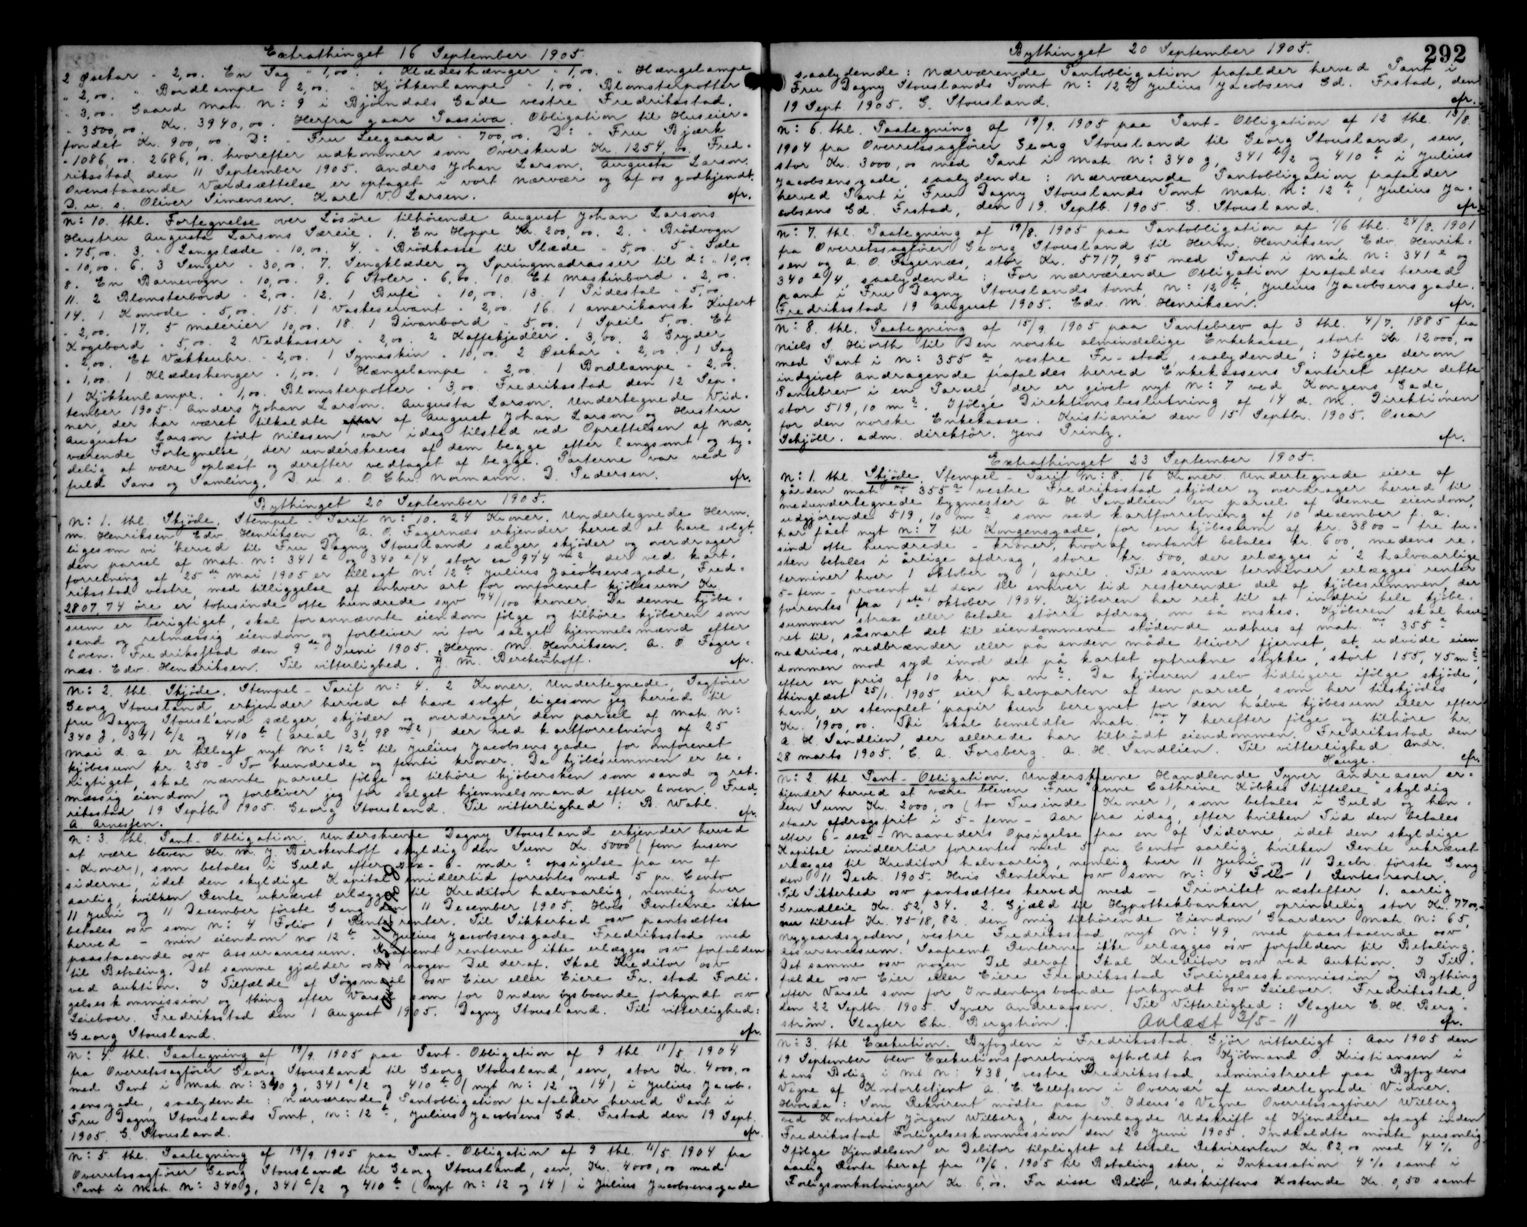 Extrathinget 16 September 1905.
2 Øsekar - 2,00. En Sag - 1,00. - Klædeshænger - 1,00. - Hængelampe
- 2,00. - Bordlampe - 2,00. - Kjøkkenlampe - 1,00. Blomsterpotter
- 3,00. Gaard mat. N: 9 i Bjørndals Gade vestre Fredrikstad.
- 3500,00. Kr. 3940,00. Herfra gaar Passiva. Obligation til Huseier-
fondet Kr. 900,00. D: - Fru Leegaard - 700,00. D: - Fru Bjærk
- 1086,00. 2686,00. hvorefter udkommer som Overskud Kr. 1254,00. Fred-
riksstad den 11 September 1905. Anders Johan Larson. Augusta Larson.
Ovenstaaende Værdsættelse er optaget i vort Nærvær og af os godkjendt.
D. u. s. Oliver Simensen. Karl V. Larsen. efr.
N: 10. thl. Fortegnelse over Løsøre tilhørende August Johan Larsons
Hustru Augusta Larsons Særeie. 1. En Hoppe Kr. 200,00. 2. - Brødvogn
- 75,00. 3. - Langslæde - 10,00. 4. - Brødkasse til Slæde - 5,00. 5 - Sæle
- 10,00. 6. 3 Senger - 30,00. 7. Sengklæder og Springmadrasser til d: - 10,00.
8. En Barnevogn - 10,00. 9. 6 Stoler - 6,00. 10. Et Maskinbord - 2,00.
11. 2 Blomsterbord - 2,00. 12. 1 Bufé - 10,00. 13. 1 Pidestal - 5,00.
14. 1 Komode - 5,00. 15. 1 Vaskeservant - 2,00. 16. 1 amerikansk Kufert
- 2,00. 17. 5 malerier 10,00. 18. 1 Divanbord - 5,00. 1 Speil 5,00. Et
Kogebord - 5,00. 2 Vedkasser - 2,00. 2 Kaffekjedler - 3,00. 2 Gryder
- 2,00. Et Vækkeuhr. - 2,00. 1 Symaskin - 10,00. 2 Øsekar - 2,00. 1 Sag
- 1,00. 1 Klædeshenger - 1,00. 1 Hængelampe - 2,00. 1 Bordlampe - 2,00.
1 Kjøkkenlampe. - 1,00. Blomsterpotter - 3,00. Fredriksstad den 12 Sep-
tember 1905. Anders Johan Larson. Augusta Larson. Undertegnede Vid-
ner, der har været tilkaldte af August Johan Larson og Hustru
Augusta Larson født Nilssen, var idag tilsted ved Oprettelsen af nær-
værende Fortegnelse, der underskreves af dem begge efter langsomt og ty-
delig at være oplæst og derefter vedtaget af begge. Parterne var ved
fuld Sans og Samling. D. u. s. O Chr. Normann. J. Pedersen. efr.
Bythinget 20 September 1905.
N: 1. thl. Skjøde. Stempel - Tarif N: 10. 24 Kroner. Undertegnede Herm.
M. Henriksen, Edv. Henriksen og A. O. Fagernæs erkjender herved at have solgt
ligesom vi herved til Fru Dagny Stousland sælger, skjøder og overdrager
den parsel af mat. N: 341 e og 340 e/14, stor ca 974 m2, der ved kart-
forretning af 25 de mai 1905 er tillagt N: 12 b Julius Jacobsensgade, Fred-
riksstad vestre, med tilliggelse af enhver art for omforenet kjøbesum Kr.
2807 74 øre er totusinde otte hundrede syv 74/100 kroner. Da denne kjøbe-
sum er berigtiget, skal forannævnte eiendom følge og tilhøre kjøberen som
sand og retmæssig eiendom og forbliver vi for salget hjemmelsmænd efter
loven. Fredriksstad den 9 de Juni 1905. Herm. M. Henriksen. A. O. Fager-
næs. Edv. Hendriksen. Til vitterlighed. J M. Berckenhoff. efr.
N: 2. thl. Skjøde. Stempel - Tarif N: 4. 2 Kroner. Undertegnede Sagfører
Georg Stousland erkjender herved at have solgt, ligesom jeg herved til
fru Dagny Stousland sælger, skjøder og overdrager den parsel af mat. N:
340 g, 341 b/2 og 410 b (areal 31,98 m2), der ved kartforretning af 25
mai d. a. er tillagt nyt N: 12 b til Julius Jacobsensgade, for omforenet
kjøbesum kr. 250 - To hundrede og femti kroner. Da kjøbesummen er be-
rigtiget, skal nævnte parsel følge og tilhøre kjøbersken som sand og ret-
mæssig eiendom og forbliver jeg for salget hjemmelsmand efter loven. Fred-
riksstad, 19 Septbr. 1905. Georg Stousland. Til vitterlighed: B. Wahl.
A Arnesen. efr.
N: 3. thl. Pant-Obligation. Underskrevne Dagny Stousland erkjender herved
at være bleven Hr. M. J Berckenhoff skyldig den Sum Kr. 5000 (fem tusen
- Kroner), som betales i Guld efter sex - 6 - mdr's opsigelse fra en af
siderne, idet den skyldige Kapital imidlertid forrentes med 5 pr. Cento
aarlig, hvilken Rente ukrævet erlægges til Kreditor halvaarlig, nemlig hver
11 Juni og 11 December første Gang den 11 December 1905. Hvis Renterne ikke
betales osv som N: 4 Folio 1 Rentesrenter. Til Sikkerhed osv pantsættes
herved - min eiendom no 12 b Julius Jacobsensgade Fredriksstad med
paastaaende osv Assurancesum. Saafremt renterne ikke erlægges osv forfalden
til Betaling. Det samme gjælder osv nogen Del deraf. Skal Kreditor osv
ved Auktion. I Tilfælde af Søgsmaal osv Eier eller Eiere Fr. stad Forli-
gelseskommission og thing efter Varsel som for Inden bysboende forkyndt osv
Leieboer. Fredriksstad den 1 August 1905. Dagny Stousland. Til vitterlighed:
Georg Stousland. efr.
N: 4 thl. Paategning af 19/9. 1905 paa Pant-Obligation af 9 thl. 11/5 - 1904
fra Overretssagfører Georg Stousland til Georg Stousland, sen, stor Kr. 4000,00
med Pant i Mat. N: 340 g, 341 b/2 og 410 b (nyt N: 12 og 14) i Julius Jacob-
sensgade, saalydende: Nærværende Pantobligation frafalder herved Pant i
Fru Dagny Stouslands Tomt, N: 12 b, Julius Jacobsens Gd. Frstad den 19 Sept.
1905. G. Stousland. efr.
N: 5 thl. Paategning af 19/9. 1905 paa Pant-Obligation af 9 thl. 11/5. 1904 fra
Overretssagfører Georg Stousland til Georg Stousland, sen, Kr. 4000,00 med
Pant i Mat. N: 340 g, 341 b/2 og 410 b (nyt N: 12 og 14) i Julius Jacobsensgade
Avl. 23/12 1908
292
Bythinget 20 September 1905.
saalydende: Nærværende Pantobligation frafalder herved Pant i
Fru Dagny Stouslands Tomt N: 12 b, Julius Jacobsens Gd. Frstad, den
19 Sept. 1905. G. Stousland. efr.
N: 6. thl. Paategning af 19/9. 1905 paa Pant-Obligation af 12 thl. 18/8.
1904 fra Overretssagfører Georg Stousland til Georg Stousland, sen,
stor Kr. 3000,00 med Pant i Mat. N: 340 g, 341 b/2 og 410 b i Julius
Jacobsensgade saalydende: Nærværende Pantobligation frafalder
herved Pant i Fru Dagny Stouslands Tomt Matr. N: 12 b, Julius Ja-
cobsens Gd. Frstad, den 19. Septb. 1905 G. Stousland. efr.
N: 7. thl. Paategning af 19/8. 1905 paa Pantobligation af 4/6 thl. 24/9. 1901
fra Overretssagfører Georg Stousland til Herm. Henriksen, Edv. Henrik-
sen og A. O. Fagernæs, stor Kr. 5717,95 med Pant i Mat. N: 341 e og
340 e/4, saalydende: For nærværende Obligation frafaldes herved
pant i Fru Dagny Stouslands tomt N: 12 b, Julius Jacobsensgade.
Fredriksstad 19 August 1905. Edv. M. Henriksen. efr.
N: 8. thl. Paategning af 15/9. 1905 paa Pantebrev af 3 thl. 4/7. 1885 fra
Niels S. Hiorth til Den norske almindelige Enkekasse, stort Kr. 12000,00
med Pant i N: 355 a vestre Fr-stad, saalydende: Ifølge derom
indgivet Andragende frafaldes herved Enkekassens Panteret efter dette
Pantebrev i en Parcel, der er givet nyt N: 7 ved Kongens Gade,
stor 519,10 m2. Ifølge Direktionsbeslutning af 14 d. M. Direktionen
for den norske Enkekasse. Kristiania den 15 Septbr. 1905. Oscar
Schjøll. adm. direktør. Jens Printz. efr.
Extrathinget 23 September 1905.
N: 1. thl. Skjøde. Stempel - Tarif N: 8. 16 Kroner. Undertegnede eiere af
gården mat. no 355 a vestre Fredriksstad skjøder og overdrager herved til
medundertegnede bygmester A. H. Sandlien en parsel af denne eiendom,
udgjørende 519,10 m2 som ved kartforretning af 10 december f. a.
har fået nyt N: 7 til Kongensgade, for en kjøbesum af kr. 3800 - tre tu-
sind otte hundrede - kroner, hvoraf contant betales kr. 600, medens re-
sten betales i årlige afdrag, store kr. 500, der erlægges i 2 halvaarlige
terminer hver 1 oktober og 1 april. Til samme terminer erlægges renter
5 - fem - procent af den til enhver tid resterende del af kjøbesummen, der
forrentes fra 1 ste oktober 1904. Kjøberen har ret til at indfri hele kjøbe-
summen straz eller betale større afdrag om så ønskes. Kjøberen skal have
ret til, såsnart det til eiendommene stødende udhus af mat. no 355 a
nedrives, nedbrænder eller på anden måde bliver fjernet, at udvide eien-
dommen mod syd imod det på kartet optrukne stykke, stort 155,45 m2
efter en pris af 10 kr. pr m2. Da kjøberen selv tidligere ifølge skjøde,
thinglæst 25/1. 1905 eier halvparten af den parcel, som her tilskjødes
ham, er stemplet papir kun beregnet for den halve kjøbesum eller efter
Kr. 1900,00. Thi skal bemeldte mat. no 7 herefter følge og tilhøre hr.
A. H. Sandlien, der allerede har tiltrådt eiendommen. Fredriksstad den
28 marts 1905. E A. Forsberg. A. H. Sandlien. Til vitterlighed Andr.
Hauge. efr.
N: 2. thl. Pant-Obligation. Underskrevne Handlende Syver Andreasen er-
kjender herved at være bleven Fru Anne Cathrine Købkes Stiftelse skyldig
den Sum Kr. 2000,00 (to Tusinde Kroner), som betales i Guld og hen-
staar afdragsfrit i 5 - fem - Aar fra idag, efter hvilken Tid den betales
efter 6 - sex - Maaneders Opsigelse fra en af Siderne, idet den skyldige
Kapital imidlertid forrentes med 5 pr. Cento aarlig, hvilken Rente ukrævet
erlægges til Kreditor halvaarlig, nemlig hver 11 Juni og 11 Decbr. første Gang
den 11 Decbr. 1905. Hvis Renterne osv som N: 4 Folio 1 Rentesrenter.
Til Sikkerhed osv pantsættes herved med - Prioritet næstefter 1. aarlig
Grundleie Kr. 52,34. 2. Gjæld til Hypothekbanken, oprindelig stor Kr. 7700,-
nu tilrest Kr. 7518,82 den mig tilhørende Eiendom, Gaarden Mat. N: 65,
Nygaardsgaden, vestre Fredriksstad nyt N: 49, med paastaaende osv
Assurancesum. Saafremt Renterne ikke erlægges osv forfalden til Betaling.
Det samme osv nogen Del deraf. Skal Kreditor osv ved Auktion. I Til-
fælde osv Eier eller Eiere Fredriksstad Forligelseskommission og Bything
efter Varsel som for Indenbysboende forkyndt osv Leieboer. Fredriksstad,
den 22 Septbr. 1905. Syver Andreassen. Til Vitterlighed: Slagter C. H. Berg-
strøm. Slagter Chr. Bergstrøm. Avlæst 3/5 - 11 efr.
N: 3. thl. Exekution. Byfogden i Fredriksstad. Gjør vitterligt: Aar 1905 den
19 September blev Exekutionsforretning afholdt hos Kjøbmand O. Kristiansen i
hans Bolig i Mt N: 438, vestre Fredriksstad, administreret paa Byfogdens
Vegne af Kontorbetjent A. E Ellefsen i Overvær af undertegnede Vidner.
Hvorda: Som Rekvirent mødte paa J. Oderss's Vegne Overretssagfører Wilberg
ved Kontorist Jørgen Wilberg, der fremlagde Udskrift af Kjendelse afsagt inden
Fredriksstad Forligelseskommission den 20 Juni 1905. Indkaldte mødte personlig.
Ifølge Kjendelsen er Debitor tilpligtet at betale Rekvirenten Kr. 82,00 med 4 %
aarlig Rente heraf fra 17/6. 1905 til Betaling sker, i Inkassation 4 % samt i
Forligsomkostninger Kr. 6,00. For disse Beløb, Udskriftens Kostende Kr. 0,50 samt